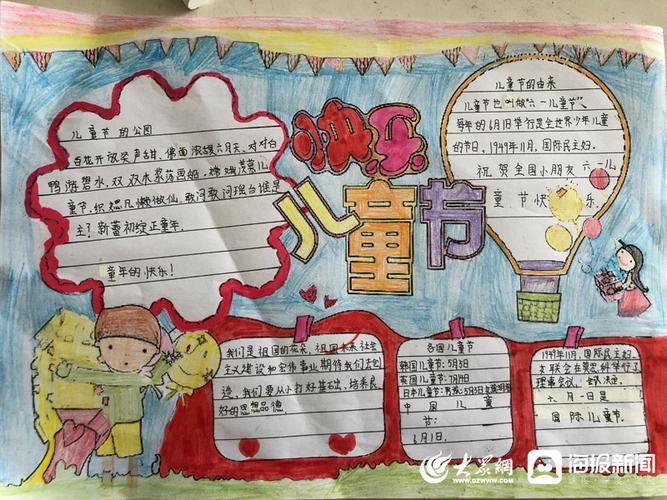 快乐
儿童节
儿童节的公园
百花开放笑声甜,佛面浓烟六月天,对对白
鸭游碧水,双双木浆荡思船,嫦娥羡慕儿
童节,织 懒做仙,敢问敢问瑶台谁是
主?新蕾初绽正童年。
童年的快乐!
儿童节的由来
儿童节也叫做"六一儿童节",
每年的6月1日举行是全世界少年儿童
的节日,1949年11月,国际民主妇。
祝贺全国小朋友六一儿
童节快乐
我们是祖国的花朵,祖国未来社会
主义建设和宏伟事业期待我们去创
造,我们要从小打好基础,培养良
好的思想品德
各国儿童节
韩国儿童节:5月5日
英国儿童节:7月14日
日本儿童节:男孩:5月5日
中国儿童
节:
6月1日。
1949年11月,国际民主妇。
女联合在莫思科举行了
理事会议,
六月一日是
国际儿童节。
大众网
www.dzwww.com
海报新闻